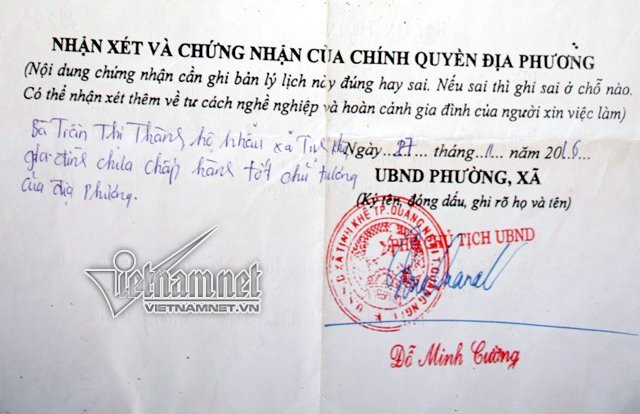 NHẬN XÉT VÀ CHỨNG NHẬN CỦA CHÍNH QUYỀN ĐỊA PHƯƠNG
(Nội dung chứng nhận cần ghi bản lý lịch này đúng hay sai. Nếu sai thì ghi sai ở chỗ nào.
Có thể nhận xét thêm về tư cách nghề nghiệp và hoàn cảnh gia đình của người xin việc làm)
Bà Trần Thị Thàng hộ khẩu xã Tịnh Khê
gia đình chưa chấp hành tốt chủ trương
của địa phương.
Ngày ..27... tháng ..11.. năm 2016...
UBND PHƯỜNG, XÃ
(Ký tên, đóng dấu, ghi rõ họ và tên)
PHÓ CHỦ TỊCH UBND
U.B.N.D XÃ TỊNH KHÊ TP.QUẢNG NGÃI T.QUẢNG NGÃI
Đỗ Minh Cường
vietnamnet
VIETNAMNET.VN